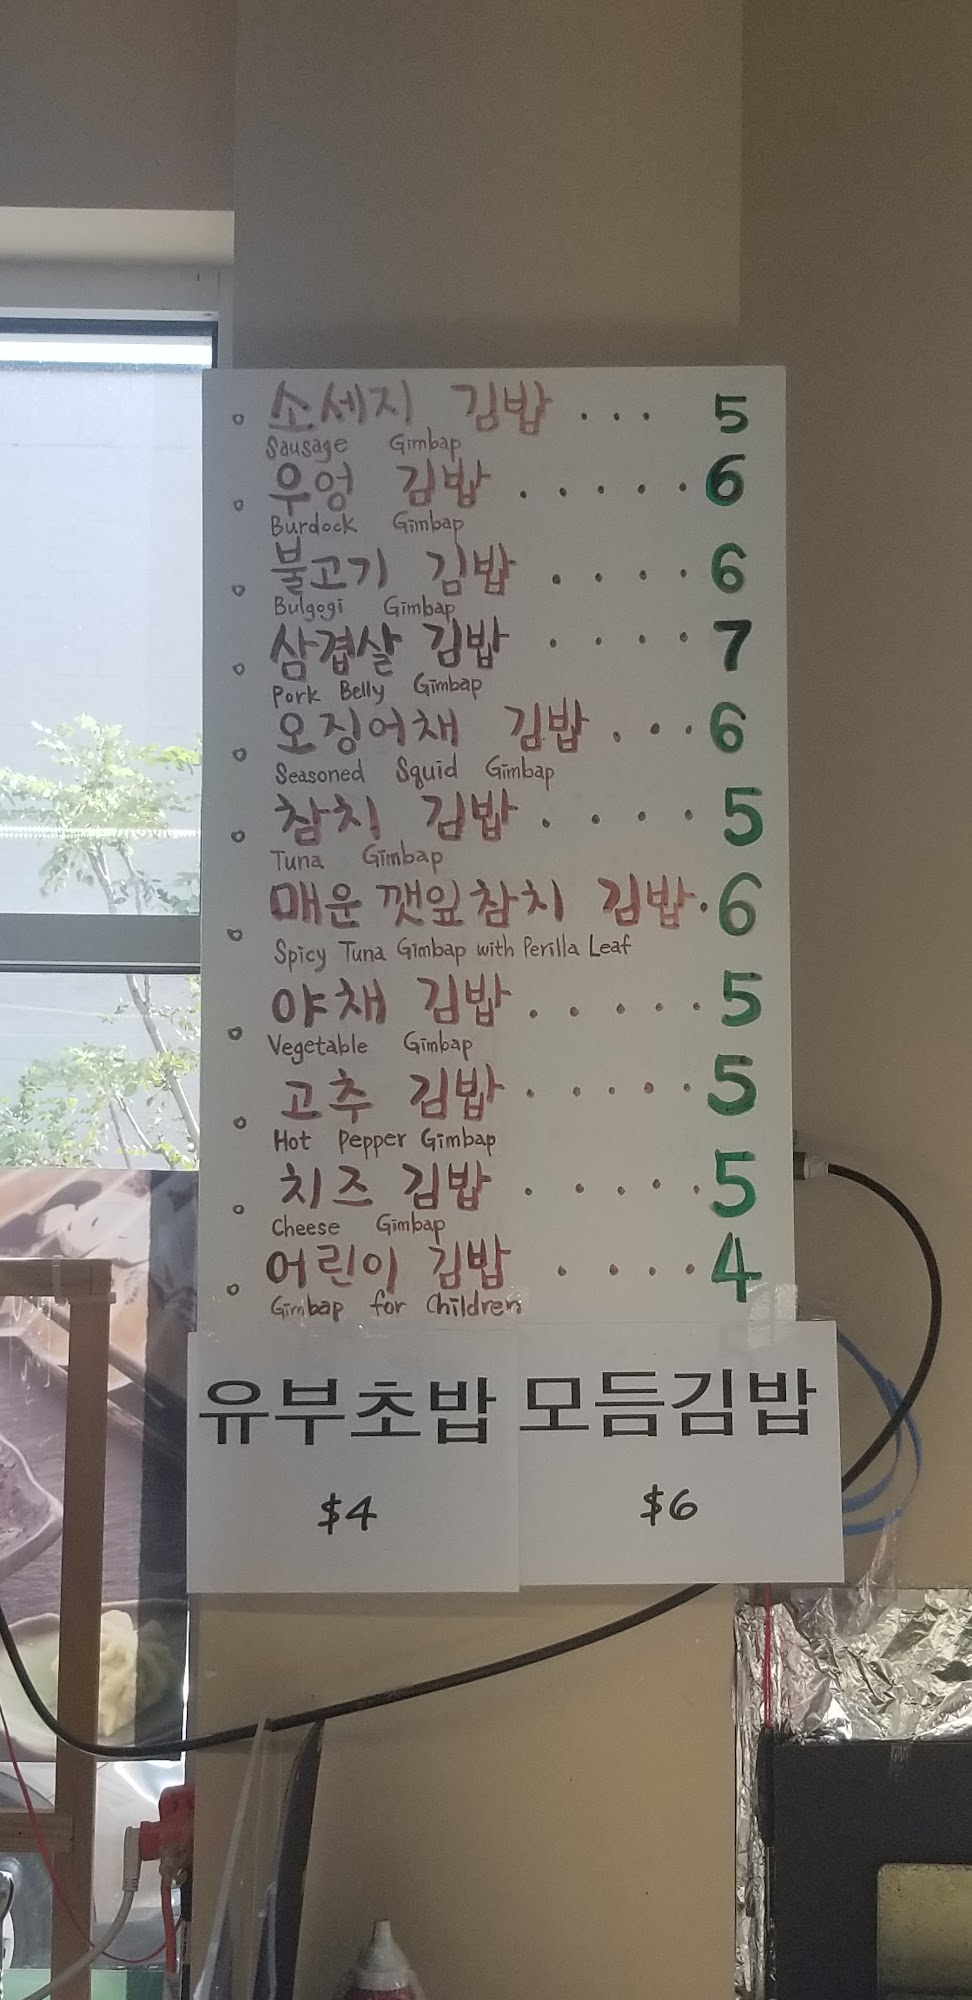 ◦ 소세지 김밥 . . . 5
Sausage Gimbap
◦ 우엉 김밥 . . . . . 6
Burdock Gimbap
◦ 불고기 김밥 . . . . 6
Bulgogi Gimbap
◦ 삼겹살 김밥 . . . . 7
Pork Belly Gimbap
◦ 오징어채 김밥 . . . 6
Seasoned Squid Gimbap
◦ 참치 김밥 . . . . 5
Tuna Gimbap
◦ 매운 깻잎참치 김밥 . 6
Spicy Tuna Gimbap with Perilla Leaf
◦ 야채 김밥 . . . . . 5
Vegetable Gimbap
◦ 고추 김밥 . . . . . 5
Hot Pepper Gimbap
◦ 치즈 김밥 . . . . . 5
Cheese Gimbap
◦ 어린이 김밥 . . . . 4
Gimbap for Children
유부초밥 모듬김밥
$4 $6